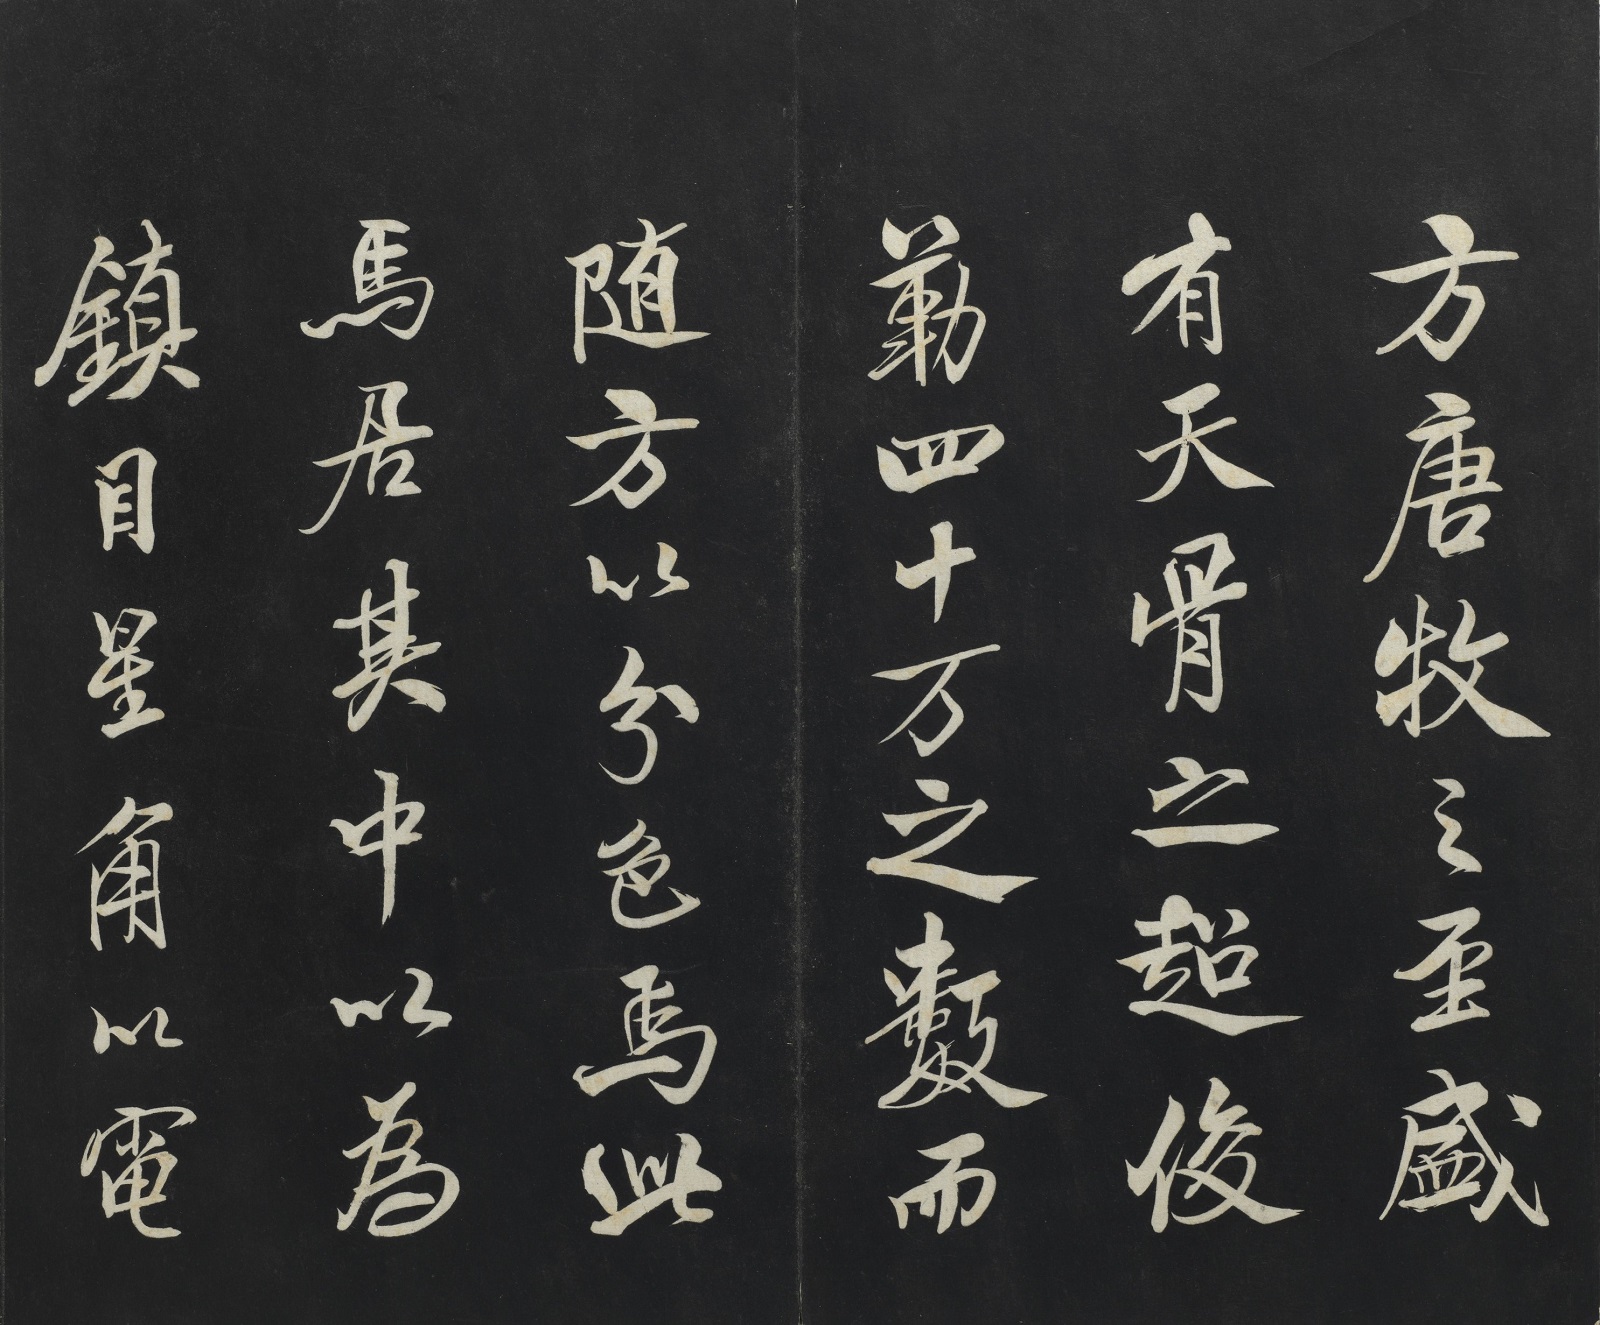 方唐牧之至盛
有天骨之超俊
勒四十万之數而
随方以分色焉此
馬居其中以為
鎮目星角以電